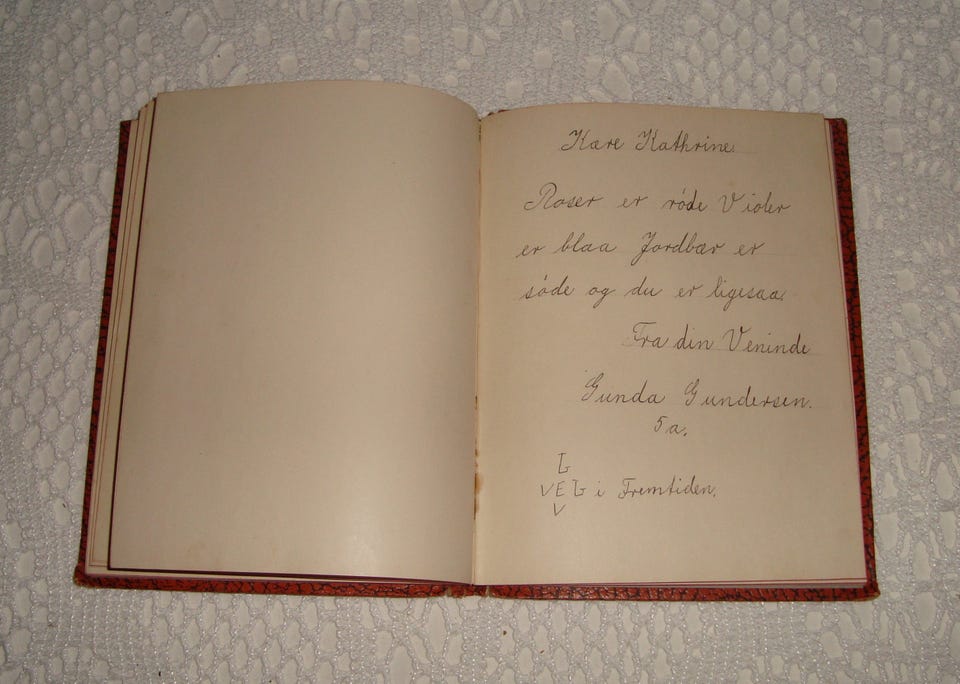 Kære Kathrine.
Roser er røde Violer
er blaa Jordbær er
søde og du er ligesaa.
Fra din Veninde
Gunda Gundersen.
5 a.
L
VEL i Fremtiden.
V